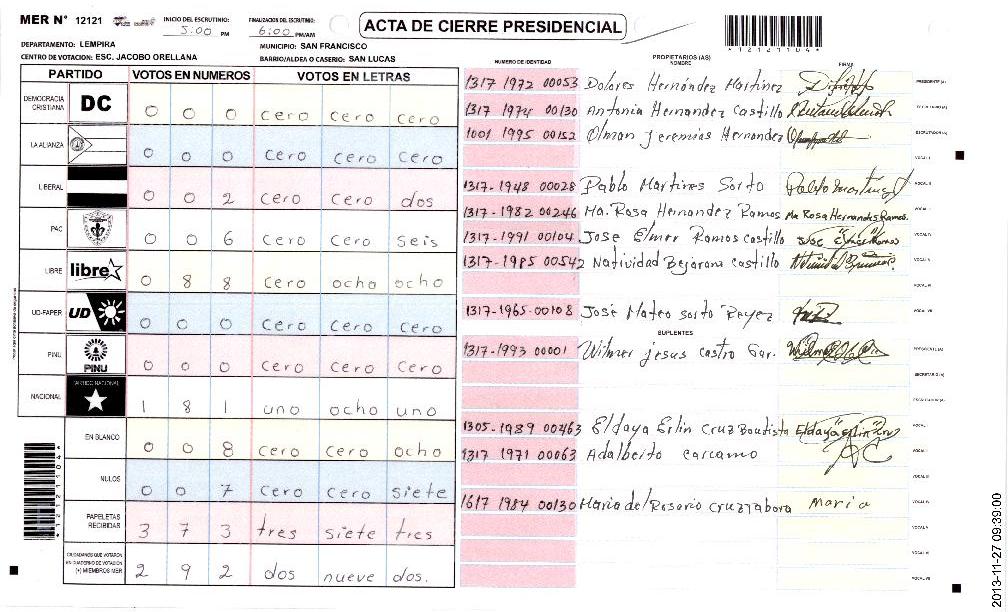 MER N° 12121
INICIO DEL ESCRUTINIO: 5:00 PM
FINALIZACION DEL ESCRUTINIO: 6:00 PM/AM
ACTA DE CIERRE PRESIDENCIAL
*12121104*
DEPARTAMENTO: LEMPIRA
MUNICIPIO: SAN FRANCISCO
CENTRO DE VOTACION: ESC. JACOBO ORELLANA
BARRIO/ALDEA O CASERIO: SAN LUCAS
PARTIDO VOTOS EN NUMEROS VOTOS EN LETRAS
DEMOCRACIA CRISTIANA DC 0 0 0 cero cero cero
LA ALIANZA 0 0 0 cero cero cero
LIBERAL 0 0 2 cero cero dos
PAC 0 0 6 cero cero seis
LIBRE libre 0 8 8 cero ocho ocho
UD-FAPER UD 0 0 0 cero cero cero
PINU PINU 0 0 0 cero cero cero
NACIONAL PARTIDO NACIONAL 1 8 1 uno ocho uno
EN BLANCO 0 0 8 cero cero ocho
NULOS 0 0 7 cero cero siete
PAPELETAS RECIBIDAS 3 7 3 tres siete tres
CIUDADANOS QUE VOTARON EN CUADERNO DE VOTACION (+) MIEMBROS MER 2 9 2 dos nueve dos.
*12121104*
NUMERO DE IDENTIDAD PROPIETARIOS (AS) NOMBRE FIRMA
1317 1972 00053 Dolores Hernández Martinez PRESIDENTE (A)
1317 1974 00130 Antonia Hernandez Castillo SECRETARIO (A)
1001 1995 00152 Olman Jeremias Hernandez ESCRUTADOR (A)
VOCAL I
1317-1948 00028 Pablo Martines Sorto Pablo Martines VOCAL II
1317-1982 00246 Ma. Rosa Hernandez Ramos Ma Rosa Hernandes Ramos. VOCAL III
1317-1991 00104 Jose Elmer Ramos castillo Jose Elmer Ramos VOCAL IV
1317-1985 00542 Natividad Bejarana castillo VOCAL V
VOCAL VI
1317-1965-00108 José Mateo sorto Reyez VOCAL VII
SUPLENTES
1317-1993 00001 Wilmer jesus castro Gar. PRESIDENTE (A)
SECRETARIO (A)
ESCRUTADOR (A)
1305-1989 00463 Eldaya Erlin Cruz Bautista VOCAL I
1317 1971 00063 Adalberto carcamo AC VOCAL II
VOCAL III
1617 1984 00130 Maria del Rosario cruz tabora Maria VOCAL IV
VOCAL V
VOCAL VI
VOCAL VII
2013-11-27 09:39:00